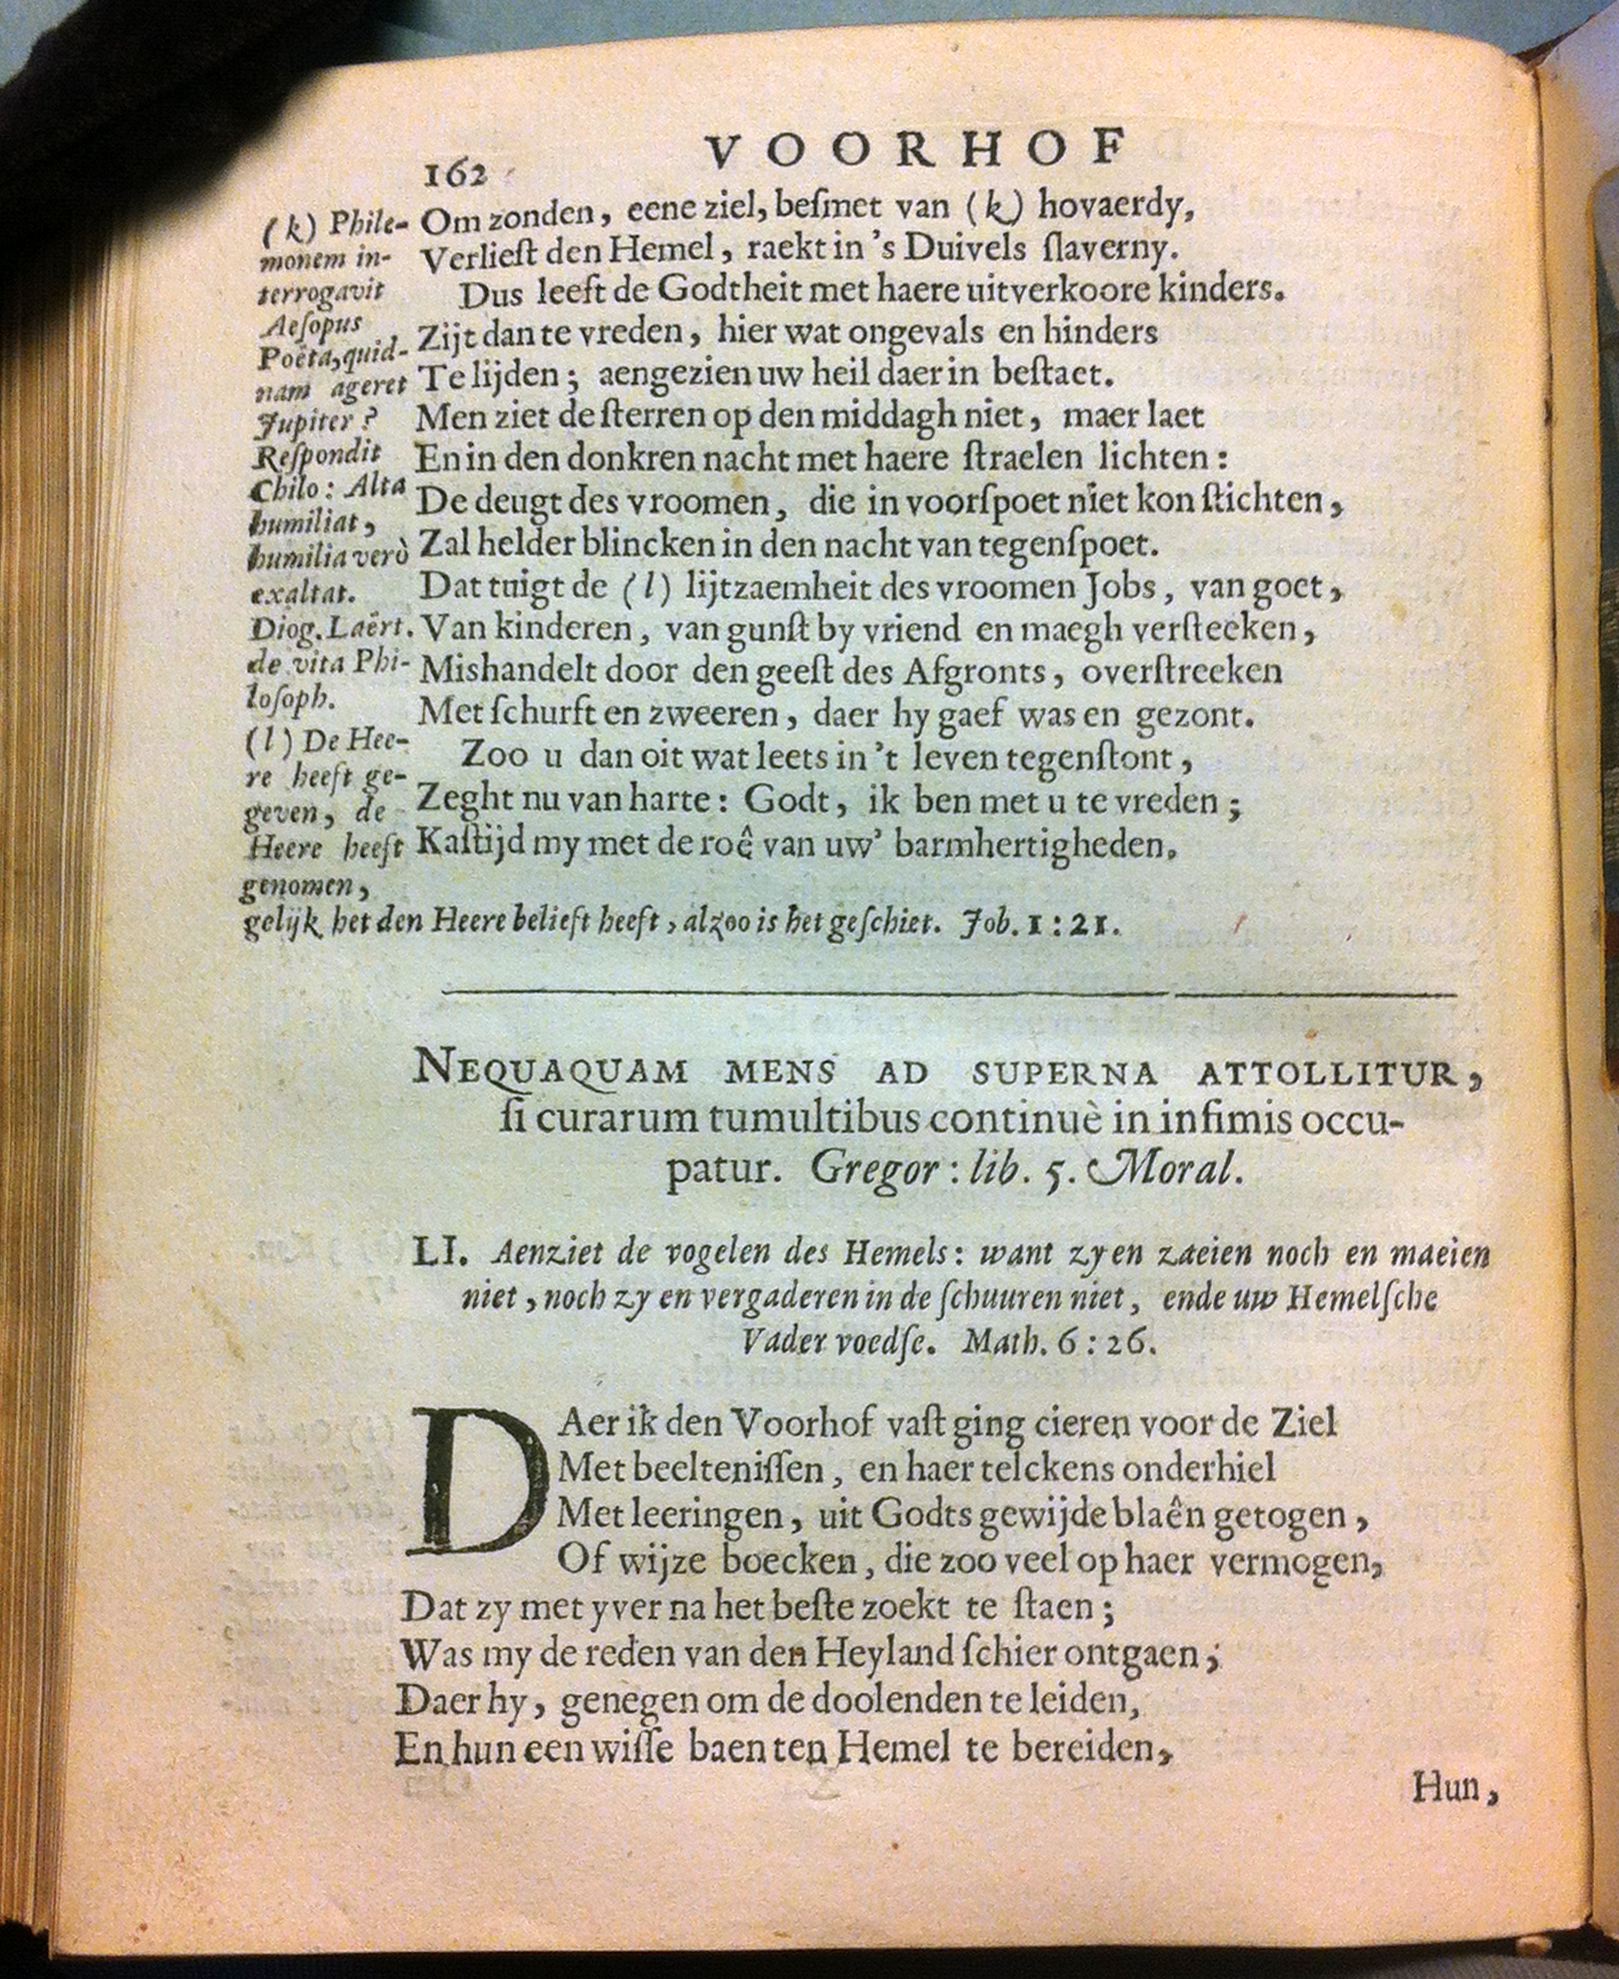 162
VOORHOF
Om zonden, eene ziel, beſmet van (k) hovaerdy,
Verlieſt den Hemel, raekt in 's Duivels ſlaverny.
Dus leeft de Godtheit met haere uitverkoore kinders.
Zijt dan te vreden, hier wat ongevals en hinders
Te lijden; aengezien uw heil daer in beſtaet.
Men ziet de ſterren op den middagh niet, maer laet
En in den donkren nacht met haere ſtraelen lichten:
De deugt des vroomen, die in voorſpoet niet kon ſtichten,
Zal helder blincken in den nacht van tegenſpoet.
Dat tuigt de (l) lijtzaemheit des vroomen Jobs, van goet,
Van kinderen, van gunſt by vriend en maegh verſteeken,
Mishandelt door den geeſt des Afgronts, overſtreeken
Met ſchurft en zweeren, daer hy gaef was en gezont.
Zoo u dan oit wat leets in 't leven tegenſtont,
Zeght nu van harte: Godt, ik ben met u te vreden;
Kaſtijd my met de roê van uw' barmhertigheden.
(k) Phile-
monem in-
terrogavit
Aeſopus
Poëta, quid-
nam ageret
Jupiter?
Reſpondit
Chilo: Alta
humiliat,
humilia verò
exaltat.
Diog. Laërt.
de vita Phi-
loſoph.
(l) De Hee-
re heeft ge-
geven, de
Heere heeft
genomen,
gelijk het den Heere belieft heeft, alzoo is het geſchiet. Job. 1:21.
NEQUAQUAM MENS AD SUPERNA ATTOLLITUR,
ſi curarum tumultibus continuè in infimis occu-
patur. Gregor: lib. 5. Moral.
LI. Aenziet de vogelen des Hemels: want zy en zaeien noch en maeien
niet, noch zy en vergaderen in de ſchuuren niet, ende uw Hemelſche
Vader voedſe. Math. 6:26.
DAer ik den Voorhof vaſt ging cieren voor de Ziel
Met beelteniſſen, en haer telckens onderhiel
Met leeringen, uit Godts gewijde blaên getogen,
Of wijze boecken, die zoo veel op haer vermogen,
Dat zy met yver na het beſte zoekt te ſtaen;
Was my de reden van den Heyland ſchier ontgaen;
Daer hy, genegen om de doolenden te leiden,
En hun een wiſſe baen ten Hemel te bereiden,
Hun,